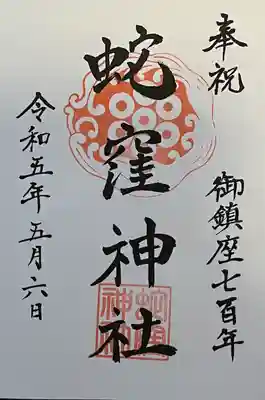 奉祝
御鎮座七百年
蛇窪神社
蛇窪神社
令和五年五月六日